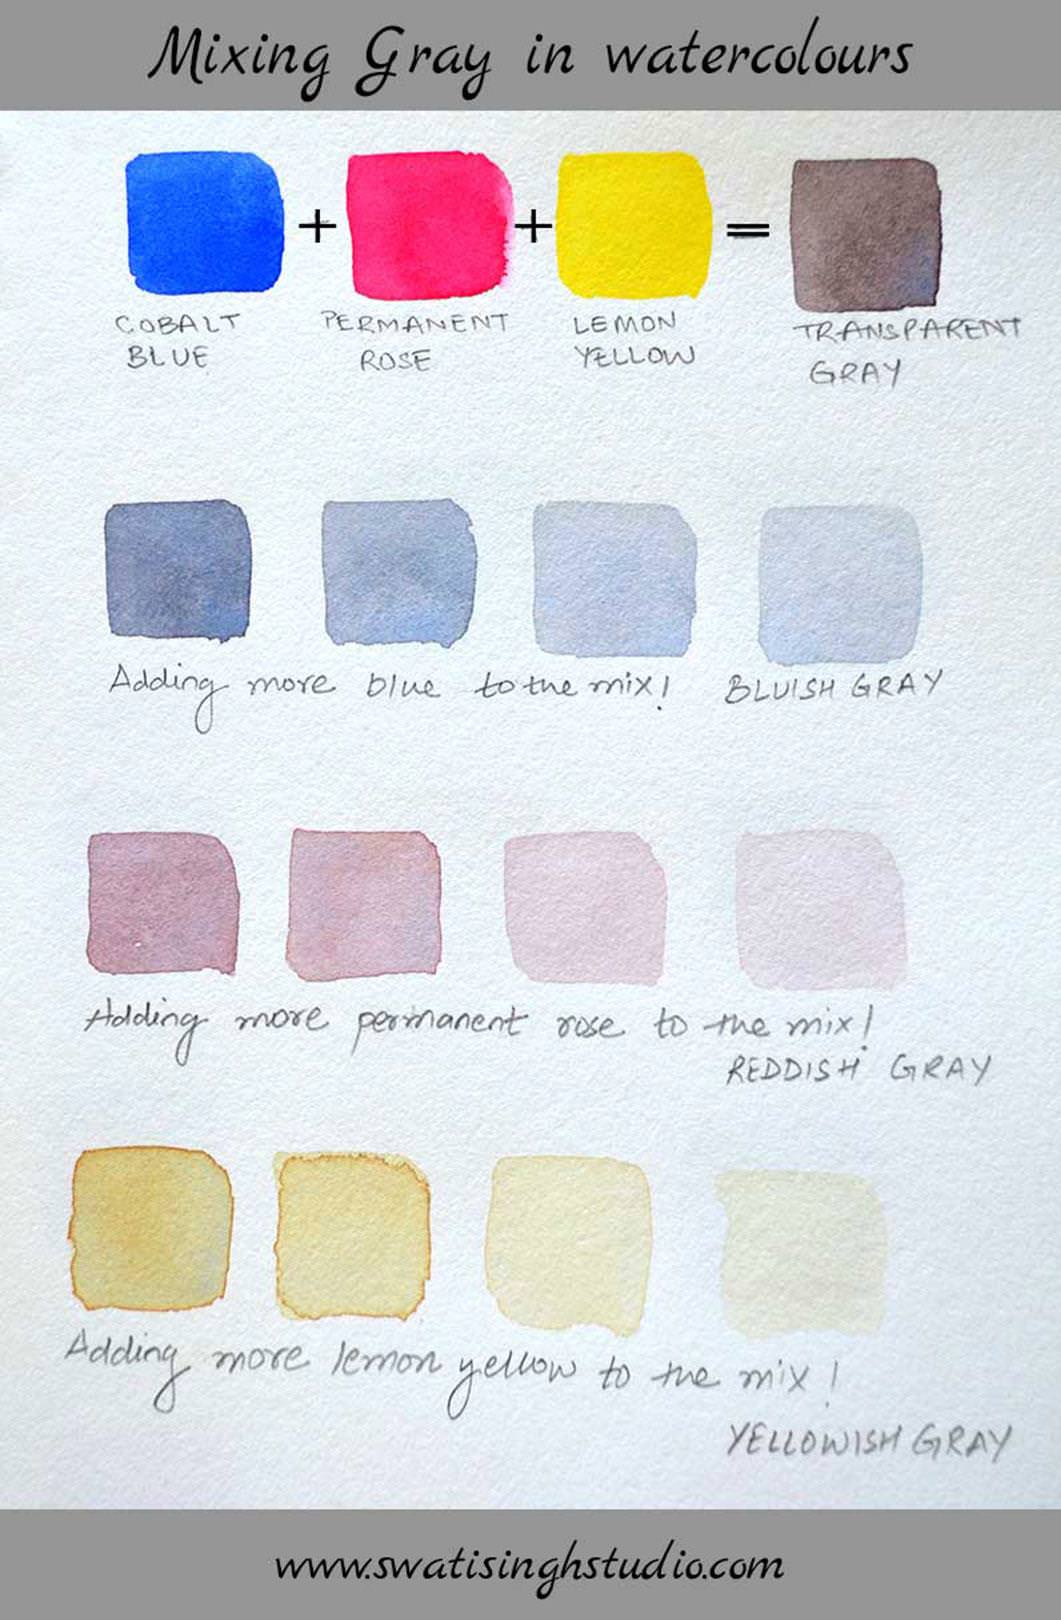 Mixing Gray in watercolours
+ + =
COBALT BLUE
PERMANENT ROSE
LEMON YELLOW
TRANSPARENT GRAY
Adding more blue to the mix! BLUISH GRAY
Adding more permanent rose to the mix!
REDDISH GRAY
Adding more lemon yellow to the mix!
YELLOWISH GRAY
www.swatisinghstudio.com